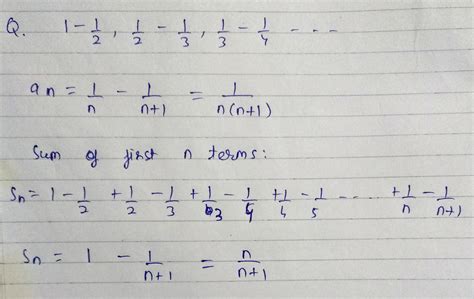 Q. 1 - 1/2, 1/2 - 1/3, 1/3 - 1/4 - - -
an = 1/n - 1/(n+1) = 1/(n(n+1))
Sum of first n terms:
Sn = 1 - 1/2 + 1/2 - 1/3 + 1/3 - 1/4 + 1/4 - 1/5 ..... + 1/n - 1/(n+1)
Sn = 1 - 1/(n+1) = n/(n+1)